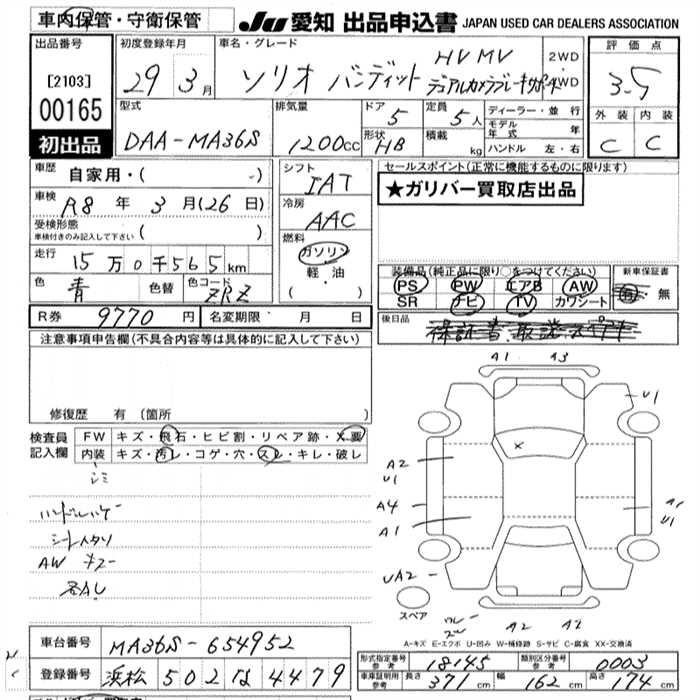 車内保管・守衛保管
JU 愛知 出品申込書 JAPAN USED CAR DEALERS ASSOCIATION
出品番号
[2103]
00165
初出品
初度登録年月
29年3月
車名・グレード
ソリオ バンディット HV MV
デュアルカメラブレーキサポート
2WD
4WD
評価点
3.5
外装 内装
C C
型式
DAA-MA36S
排気量
1200cc
ドア
5
形状
HB
定員
5人
積載
kg
ディーラー・並行
モデル年式 年
ハンドル 左・右
車歴
自家用・( )
車検
R8年3月(26日)
受検形態
車検付きのみ記入して下さい ( )
走行
15万0千565km
色
青
色替
色コード
ZRZ
シフト
IAT
冷房
AAC
燃料
ガソリン
軽・油
( ・ )
セールスポイント(正常に機能するものに限ります)
★ガリバー買取店出品
装備品(純正品に限り○をつけてください)
PS PW エアB AW
SR ナビ TV カワシート
新車保証書
有・無
R券 9770円 名変期限 月 日
後日品
保証書、取説、スペアキー
注意事項申告欄(不具合内容等は具体的に記入して下さい)
修復歴 有(箇所
検査員記入欄
FW キズ・飛石・ヒビ割・リペア跡・X要
内装 キズ・汚レ・コゲ・穴・スレ・キレ・破レ
シミ
AW キズ
A1 A3
U1
A2
U1
A4
A1
A1
U1
UA2
A2 A2
スペア
A-キズ E-エクボ U-凹み W-補修跡 S-サビ C-腐食 XX-交換済
車台番号
MA36S-654952
登録番号
浜松 502 な 4479
形式指定番号 参考
18145
類別区分番号 参考
0003
車庫証明用 参考
長さ 371cm 幅 162cm 高さ 174cm